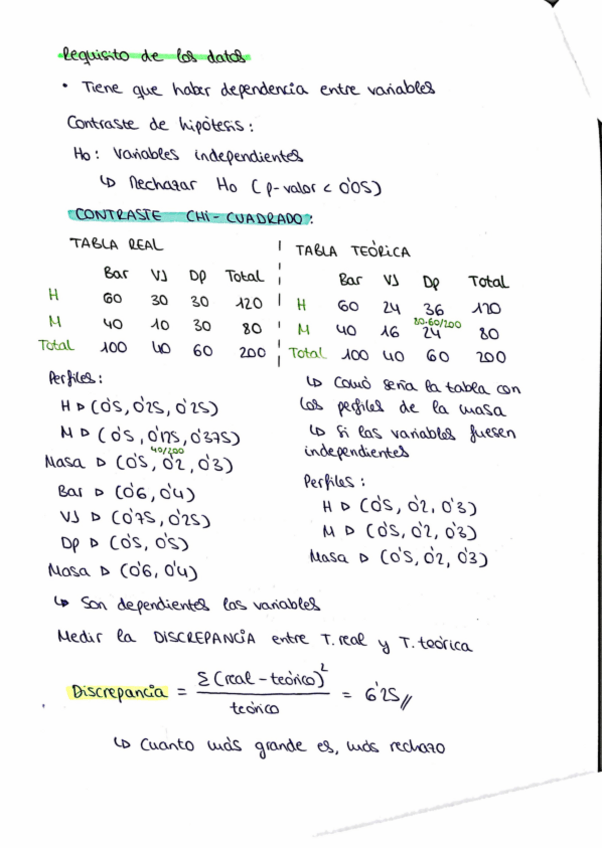 Requisito de los datos
• Tiene que haber dependencia entre variables
Contraste de hipótesis:
Ho: Variables independientes
↳ Rechazar Ho (p-valor < 0'05)
CONTRASTE CHI-CUADRADO:
TABLA REAL
Bar VJ Dp Total
H 60 30 30 120
M 40 10 30 80
Total 100 40 60 200
Perfiles:
H ▷ (0'5, 0'25, 0'25)
M ▷ (0'5, 0'125, 0'375)
40/200
Masa ▷ (0'5, 0'2, 0'3)
Bar ▷ (0'6, 0'4)
VJ ▷ (0'75, 0'25)
Dp ▷ (0'5, 0'5)
Masa ▷ (0'6, 0'4)
TABLA TEÓRICA
Bar VJ Dp Total
H 60 24 36 120
80·60/200
M 40 16 24 80
Total 100 40 60 200
↳ Como sería la tabla con
los perfiles de la masa
↳ Si las variables fuesen
independientes
Perfiles:
H ▷ (0'5, 0'2, 0'3)
M ▷ (0'5, 0'2, 0'3)
Masa ▷ (0'5, 0'2, 0'3)
↳ Son dependientes las variables
Medir la DISCREPANCIA entre T. real y T. teórica
Discrepancia = Σ(real - teórico)² / teórico = 6'25//
↳ Cuanto más grande es, más rechazo